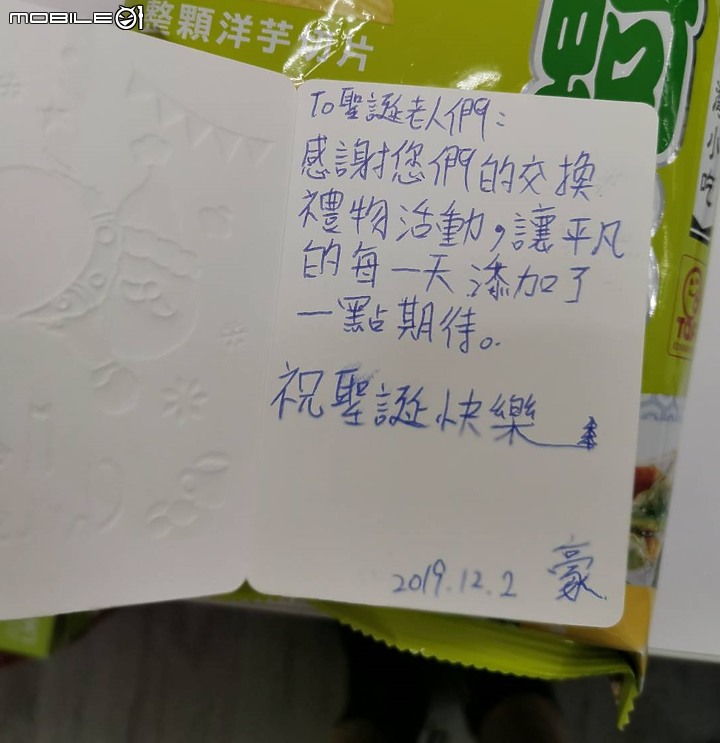 MOBILE01
整顆洋芋切片
To聖誕老人們:
感謝您們的交換
禮物活動,讓平凡
的每一天添加了
一點期待。
祝聖誕快樂
2019.12.2 豪
小吃